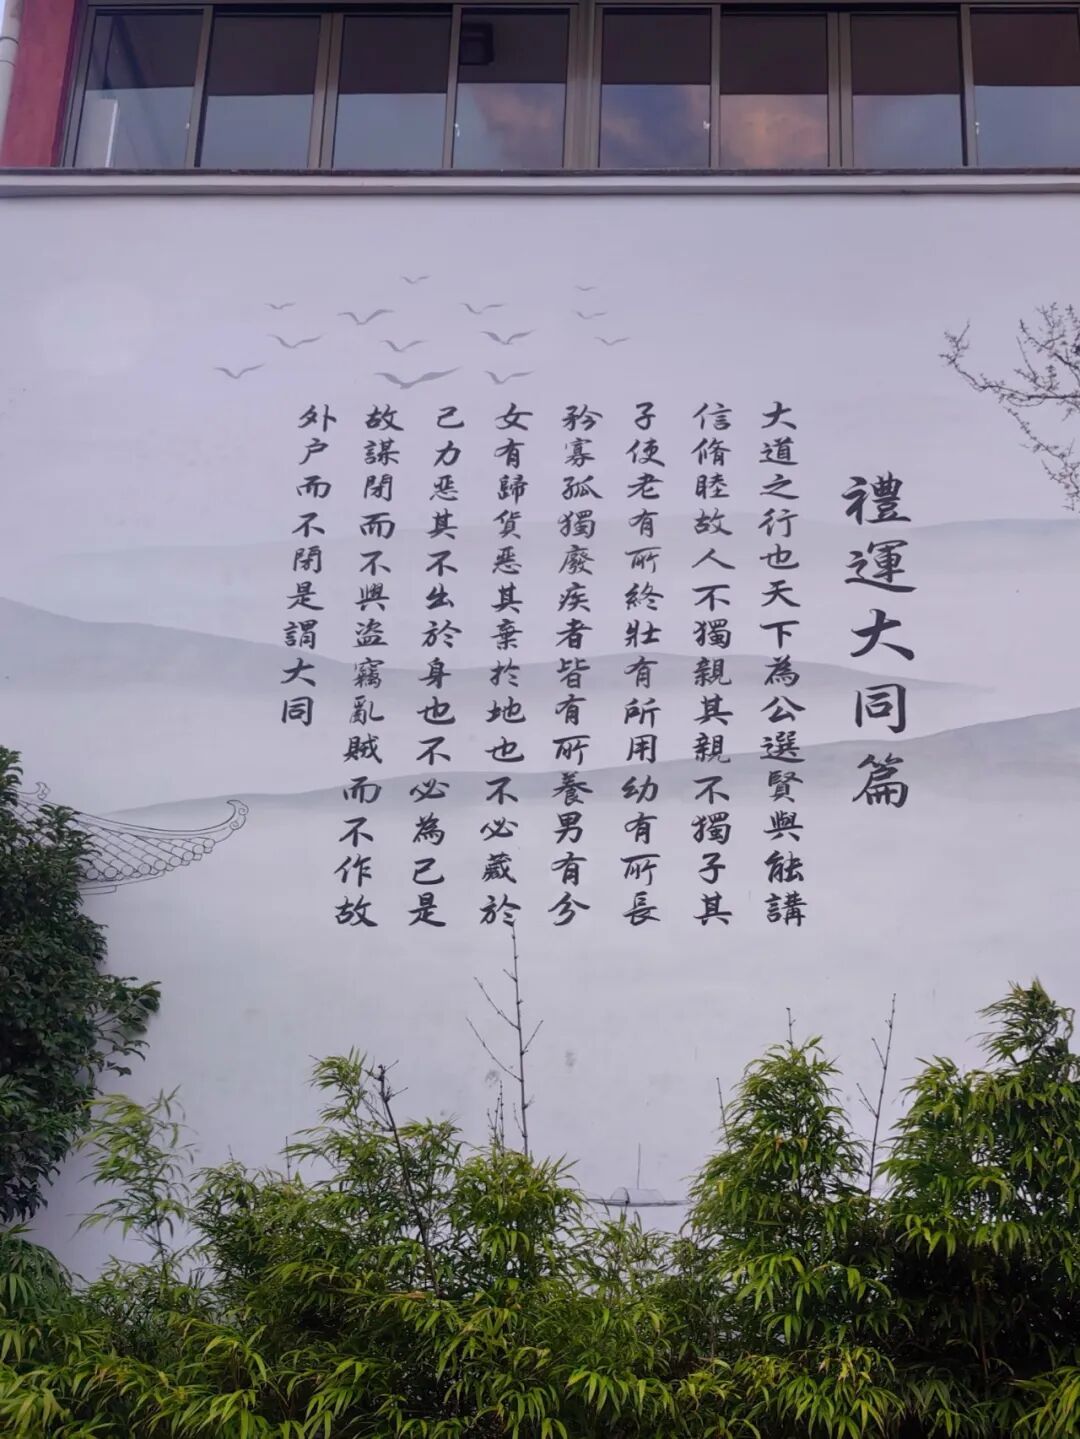 禮運大同篇
大道之行也天下為公選賢與能講
信脩睦故人不獨親其親不獨子其
子使老有所終壯有所用幼有所長
矜寡孤獨廢疾者皆有所養男有分
女有歸貨惡其棄於地也不必藏於
己力惡其不出於身也不必為己是
故謀閉而不興盜竊亂賊而不作故
外户而不閉是謂大同